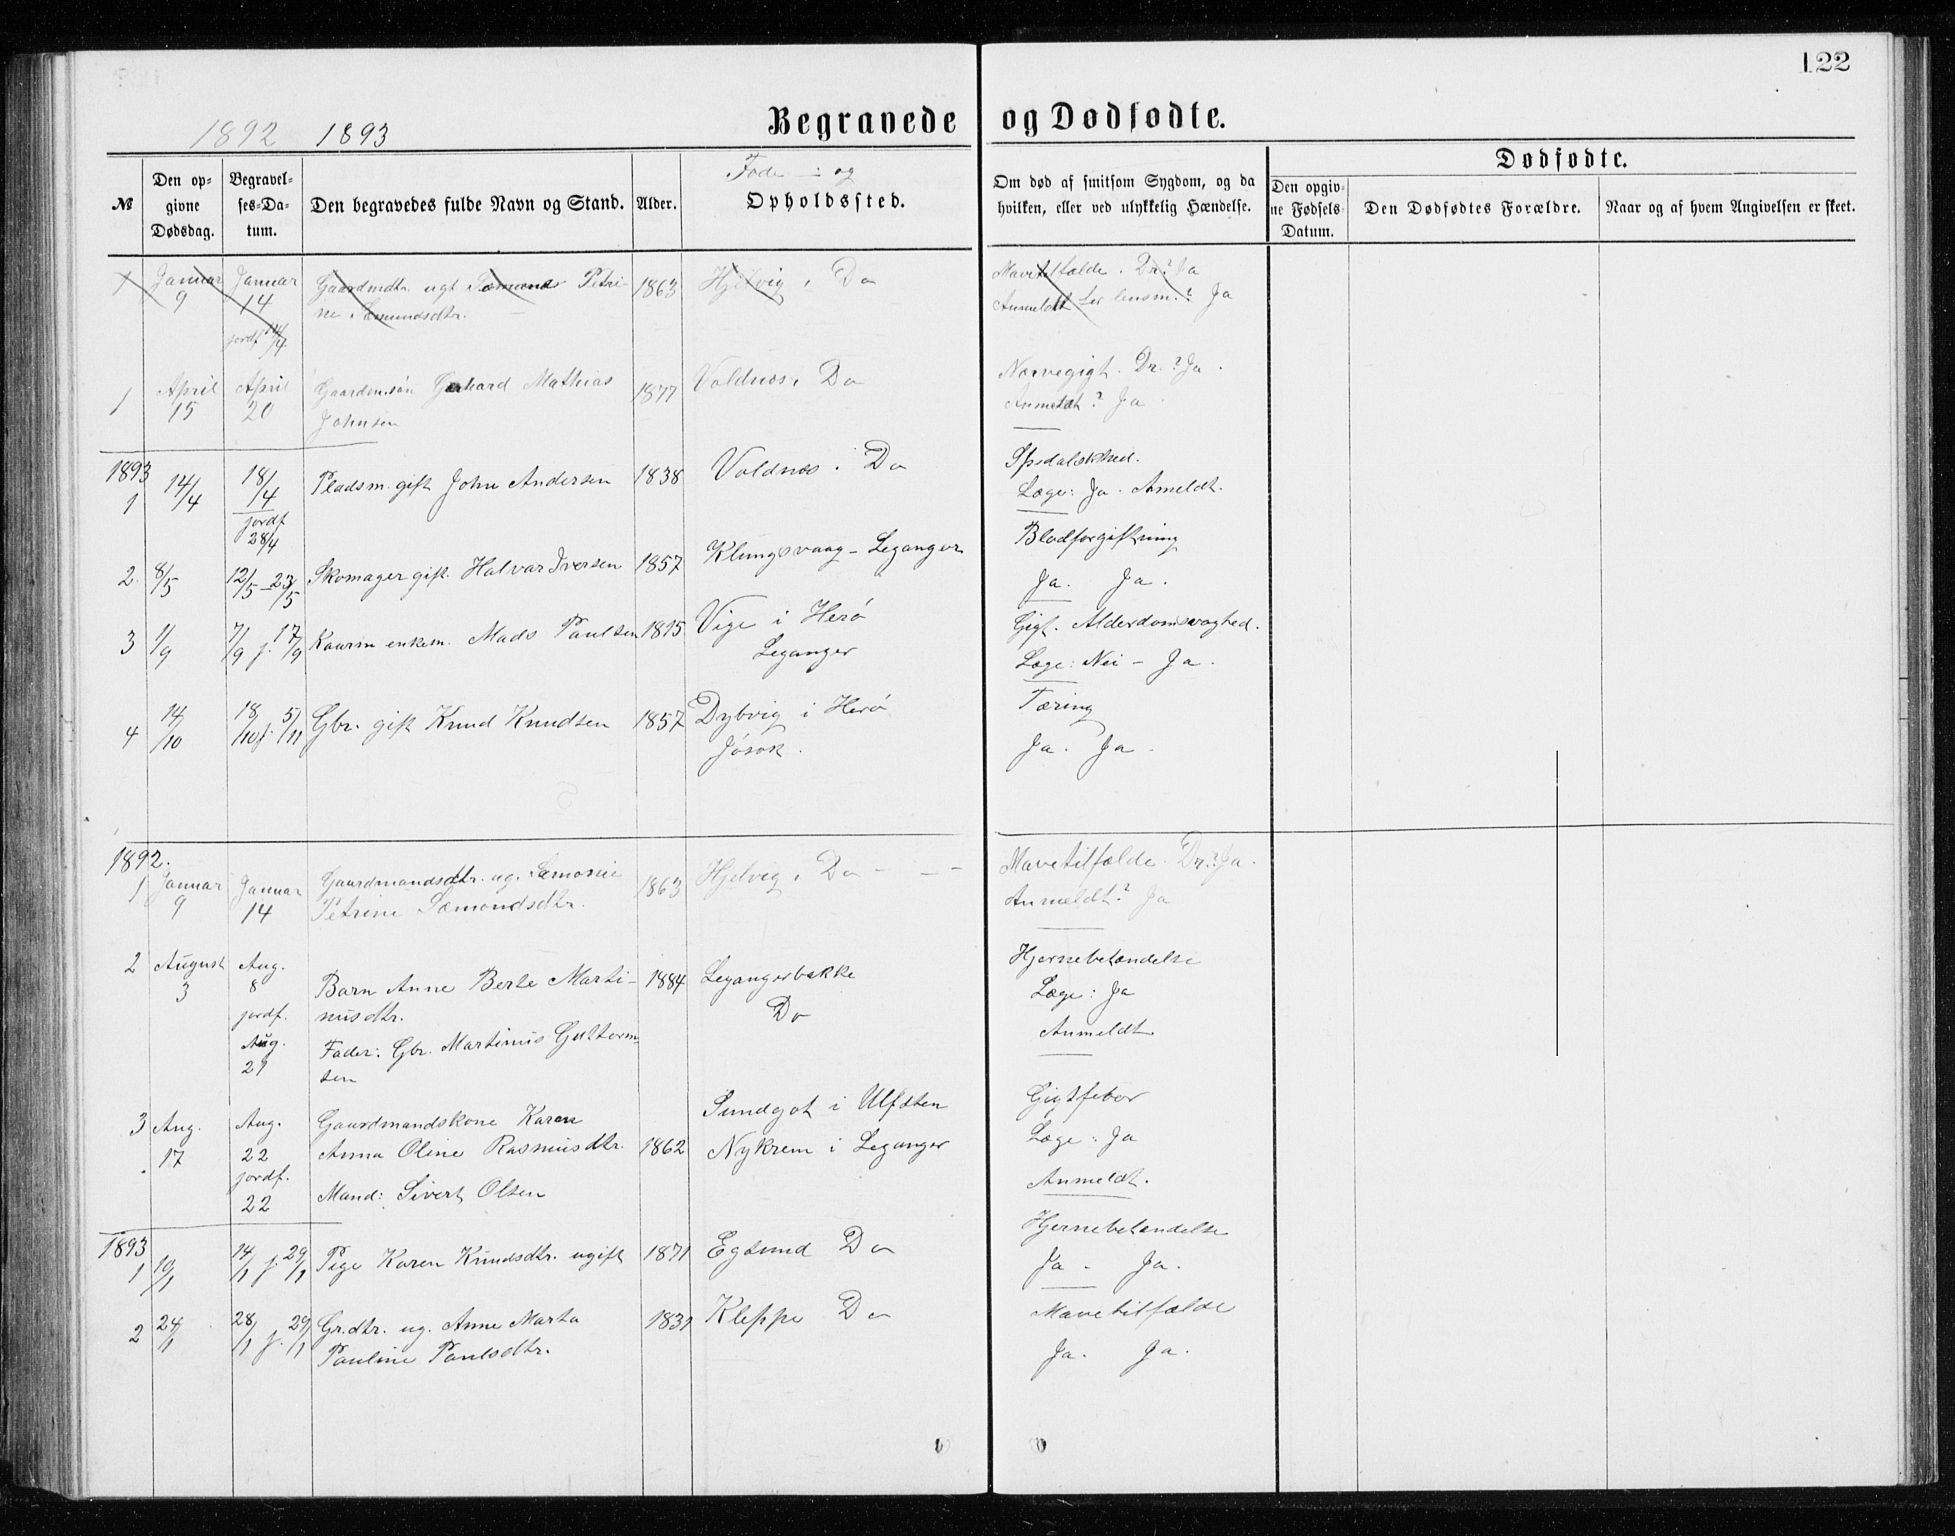 122
1892 1893
Begravede og Dødfødte.
№
Den opgivne Dødsdag.
Begravelses-Datum.
Den begravedes fulde Navn og Stand.
Alder.
Føde- og
Opholdssted.
Om død af smitsom Sygdom, og da
hvilken, eller ved ulykkelig Hændelse.
Dødfødte.
Den opgivne Fødsels-Datum.
Den Dødfødtes Forældre.
Naar og af hvem Angivelsen er skeet.
1 Januar 9 Januar 14 jordf 14/4 Gaardmdtr. ugt Petri- 1863 Hjelvig, Do Mavetilfælde. Dr.? Ja
ne Sæmundsdtr. Anmeldt lensm.? Ja
1 April 15 April 20 Gaardm.søn Gerhard Mathias 1877 Voldnes, Do Nervegigt. Dr.? Ja.
Johnsen Anmeldt? Ja
1893
1 14/4 18/4 jordf 28/4 Pladsm. gift John Andersen 1838 Voldnes i Do Spedalskhed.
Læge: Ja. Anmeldt.
2. 8/5 12/5 - 23/5 Skomager gift. Halvar Iversen 1857 Klungsvaag - Leganger Blodforgiftning
Ja. Ja.
3 1/9 7/9 j. 17/9 Kaarm enkem. Mads Paulsen 1815 Vige i Herø Gigt. Alderdomssvaghed.
Leganger Læge: Nei - Ja.
4 14/10 18/10 j. 5/11 Gbr. gift Knud Knudsen 1857 Dybvig i Herø Tæring
Jøsok. Ja. Ja.
1892.
1 Januar 9 Januar 14 Gaardmandsdtr. ug. Sæmosie 1863 Hjelvig, Do - - - Mavetilfælde. Dr.? Ja.
Petrine Sæmondsdtr. Anmeldt? Ja
2 August 3 Aug. 8 jordf. Aug. 21 Barn Anne Berte Marti- 1884 Legangerbakke Hjernebetændelse
nusdtr. Do Læge: Ja
Fader: Gbr. Martinus Guttorm- Anmeldt
sen
3 Aug. 17 Aug. 22 jordf. 22 Gaardmandskone Karen Sundgot i Ulfsten Gigtfeber
Anna Oline Rasmusdtr. 1862 Nykrem i Leganger Læge: Ja
Mand: Sivert Olsen Anmeldt.
1893
1 10/1 14/1 j. 29/1 Pige Karen Knudsdtr. ugift 1871 Egsund Do Hjernebetændelse
Ja - Ja.
2 24/1 28/1 j. 29/1 Gr.dtr. ug. Anne Marta 1831 Kleppe Do Mavetilfælde
Pauline Paulsdtr. Ja. Ja.